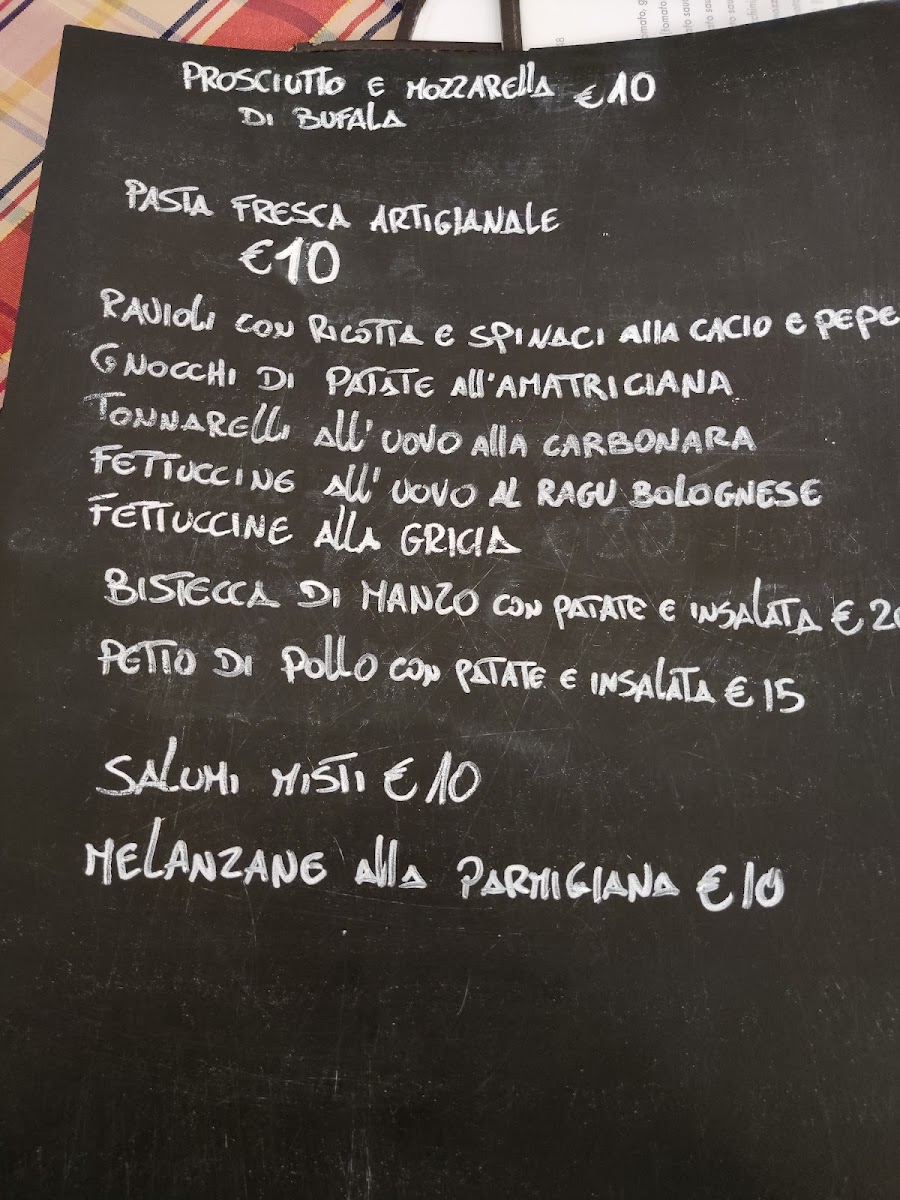 PROSCIUTTO E MOZZARELLA €10
DI BUFALA
PASTA FRESCA ARTIGIANALE
€10
RAVIOLI CON RICOTTA E SPINACI ALLA CACIO E PEPE
GNOCCHI DI PATATE ALL'AMATRICIANA
TONNARELLI ALL'UOVO ALLA CARBONARA
FETTUCCINE ALL'UOVO AL RAGU BOLOGNESE
FETTUCCINE ALLA GRICIA
BISTECCA DI MANZO CON PATATE E INSALATA € 20
PETTO DI POLLO CON PATATE E INSALATA € 15
SALUMI MISTI € 10
MELANZANE ALLA PARMIGIANA € 10